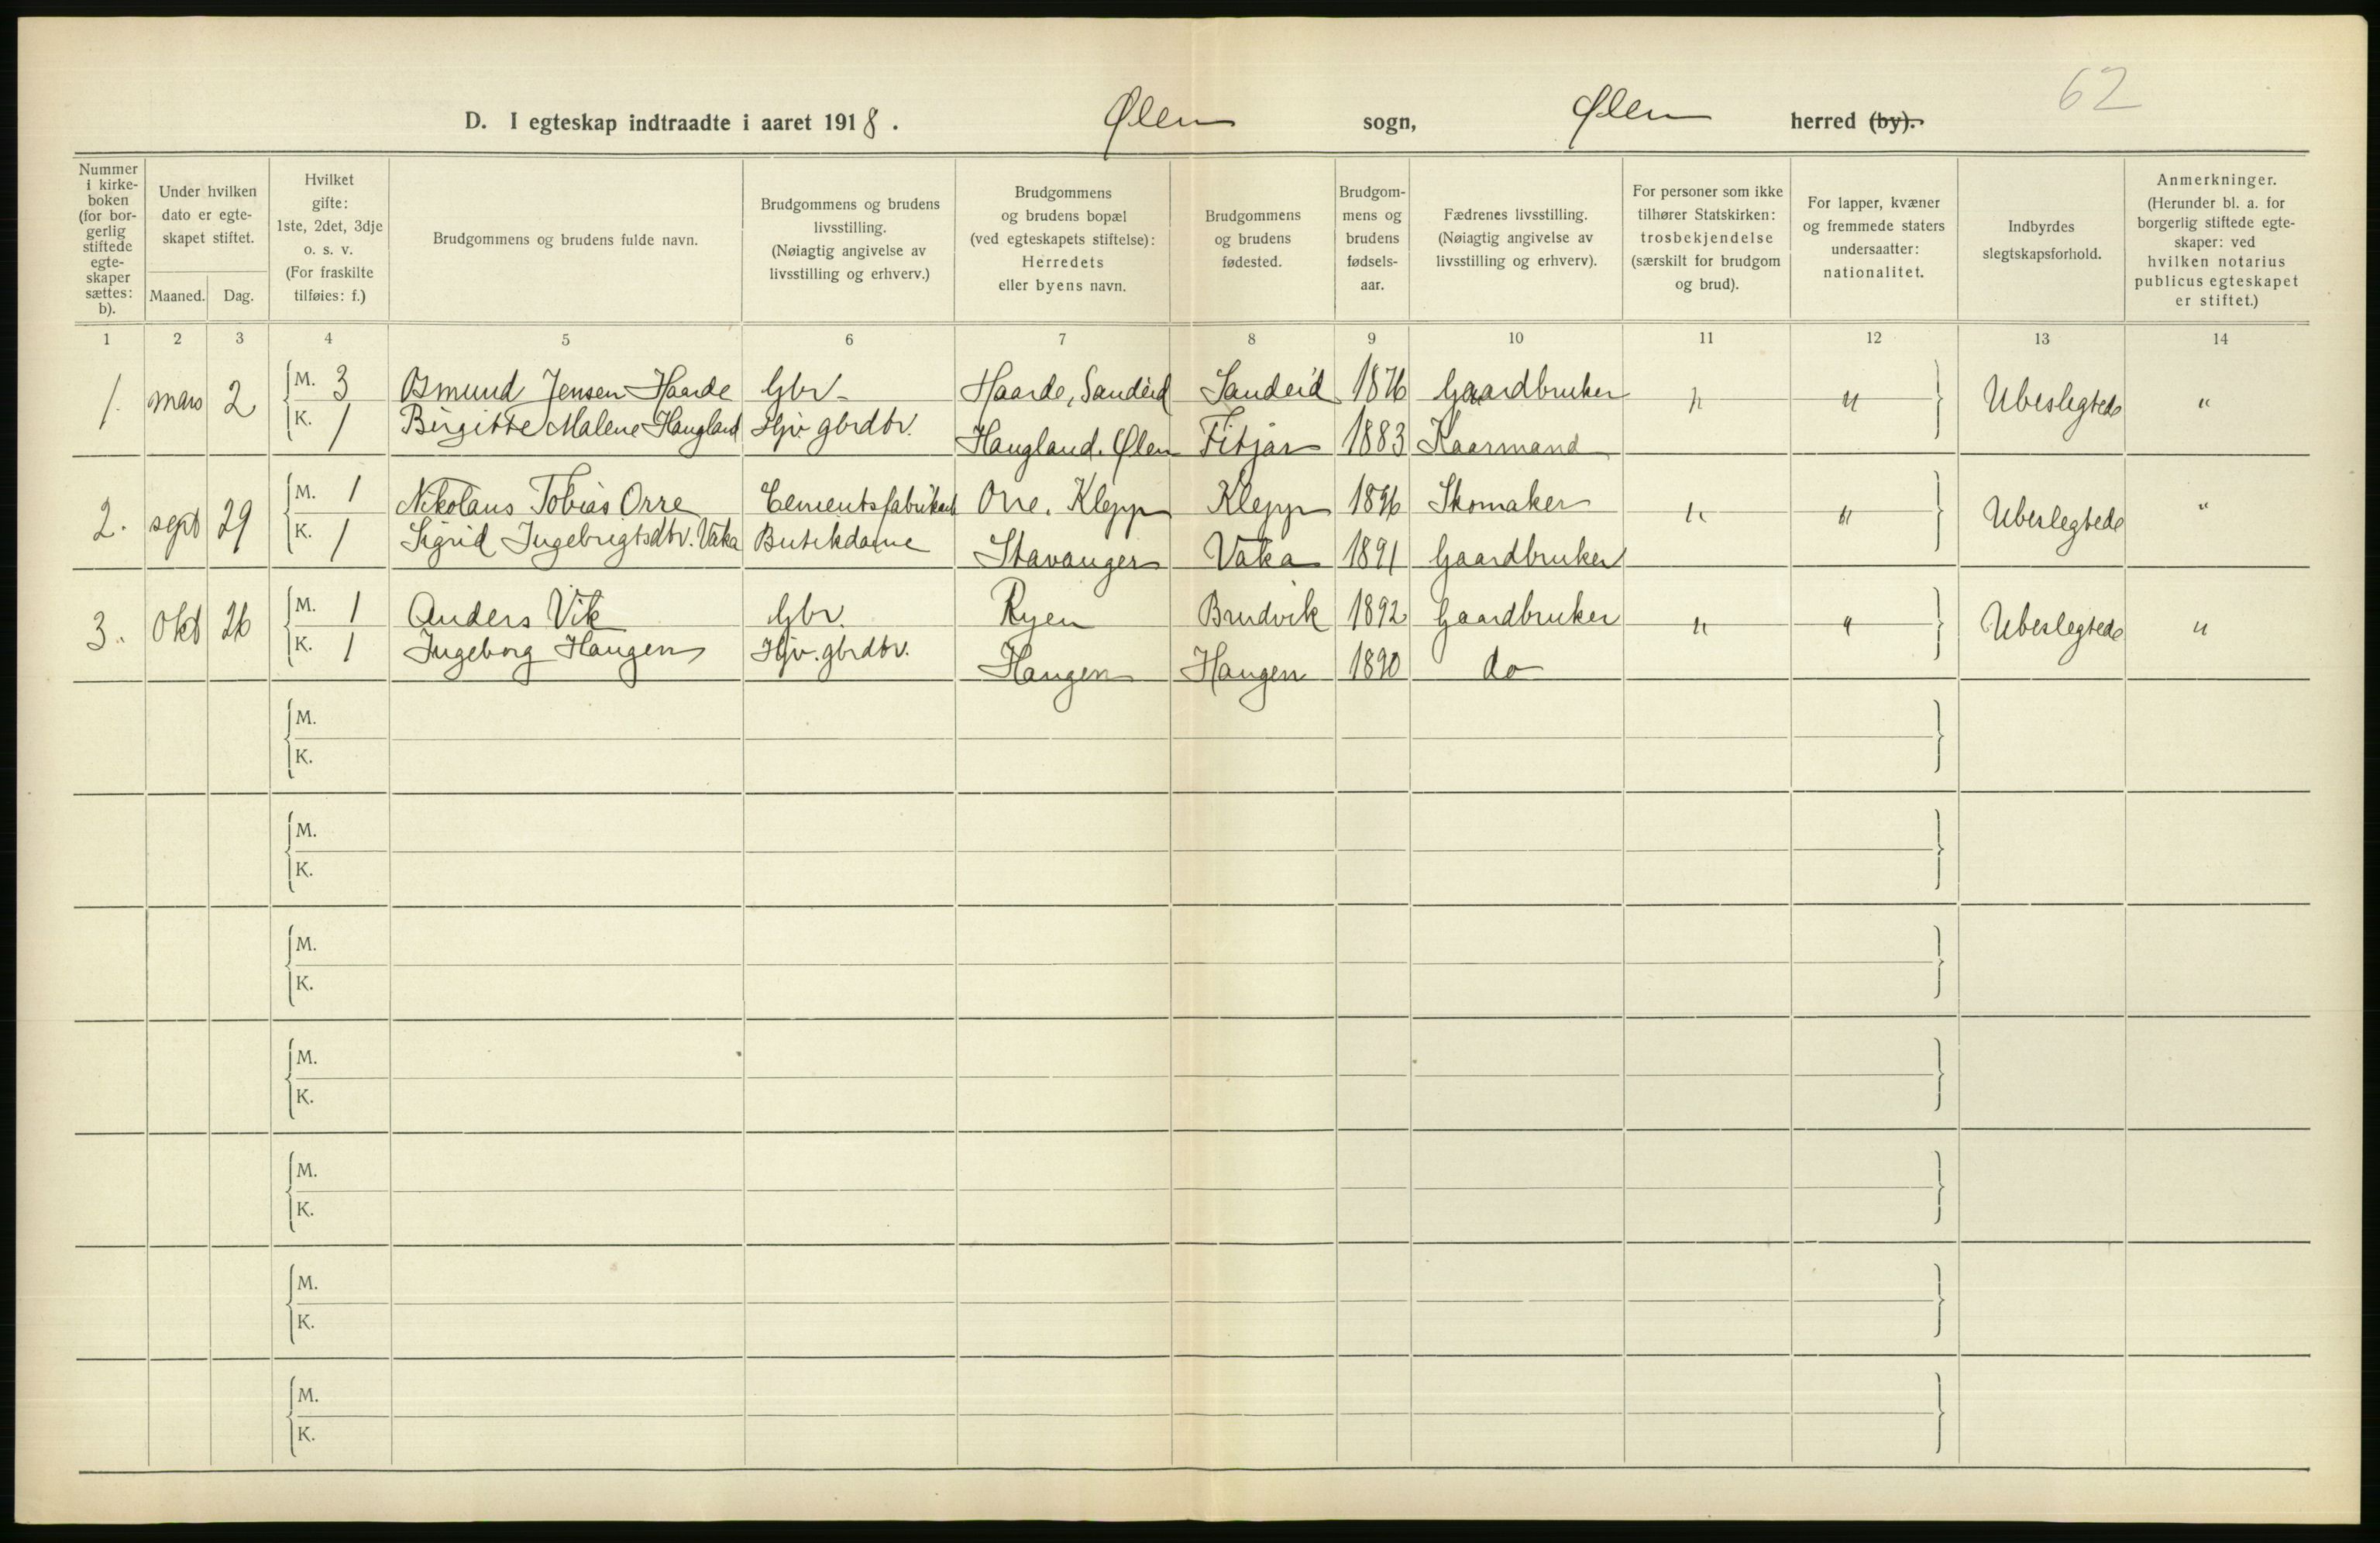 62
D. I egteskap indtraadte i aaret 1918. Ølen sogn, Ølen herred (by).
Nummer i kirkeboken (for borgerlig stiftede egteskaper sættes: b).
Under hvilken dato er egteskapet stiftet.
Maaned. Dag.
Hvilket gifte: 1ste, 2det, 3dje o. s. v. (For fraskilte tilføies: f.)
Brudgommens og brudens fulde navn.
Brudgommens og brudens livsstilling. (Nøiagtig angivelse av livsstilling og erhverv.)
Brudgommens og brudens bopæl (ved egteskapets stiftelse): Herredets eller byens navn.
Brudgommens og brudens fødested.
Brudgommens og brudens fødselsaar.
Fædrenes livsstilling. (Nøiagtig angivelse av livsstilling og erhverv).
For personer som ikke tilhører Statskirken: trosbekjendelse (særskilt for brudgom og brud).
For lapper, kvæner og fremmede staters undersaatter: nationalitet.
Indbyrdes slegtskapsforhold.
Anmerkninger. (Herunder bl. a. for borgerlig stiftede egteskaper: ved hvilken notarius publicus egteskapet er stiftet.)
1 2 3 4 5 6 7 8 9 10 11 12 13 14
1. mars 2 M. 3 Osmund Jensen Haarde Gbr. Haarde, Sandeid Sandeid 1876 Gaardbruker " " Ubeslegtede "
K. 1 Birgitte Malene Haugland Hjv. gbrdtr. Haugland. Ølen Fitjar 1883 Kaarmand
2. sept 29 M. 1 Nikolaus Tobias Orre Cementsfabrikant Orre. Klepp Klepp 1896 Skomaker " " Ubeslegtede "
K. 1 Sigrid Ingebrigtsdtr. Vaka Butikdame Stavanger Vaka 1891 Gaardbruker
3. Okt 26 M. 1 Anders Vik Gbr. Ryen Brudvik 1892 Gaardbruker " " Ubeslegtede "
K. 1 Ingeborg Haugen Hjv. gbrdtr. Haugen Haugen 1890 do
M.
K.
M.
K.
M.
K.
M.
K.
M.
K.
M.
K.
M.
K.